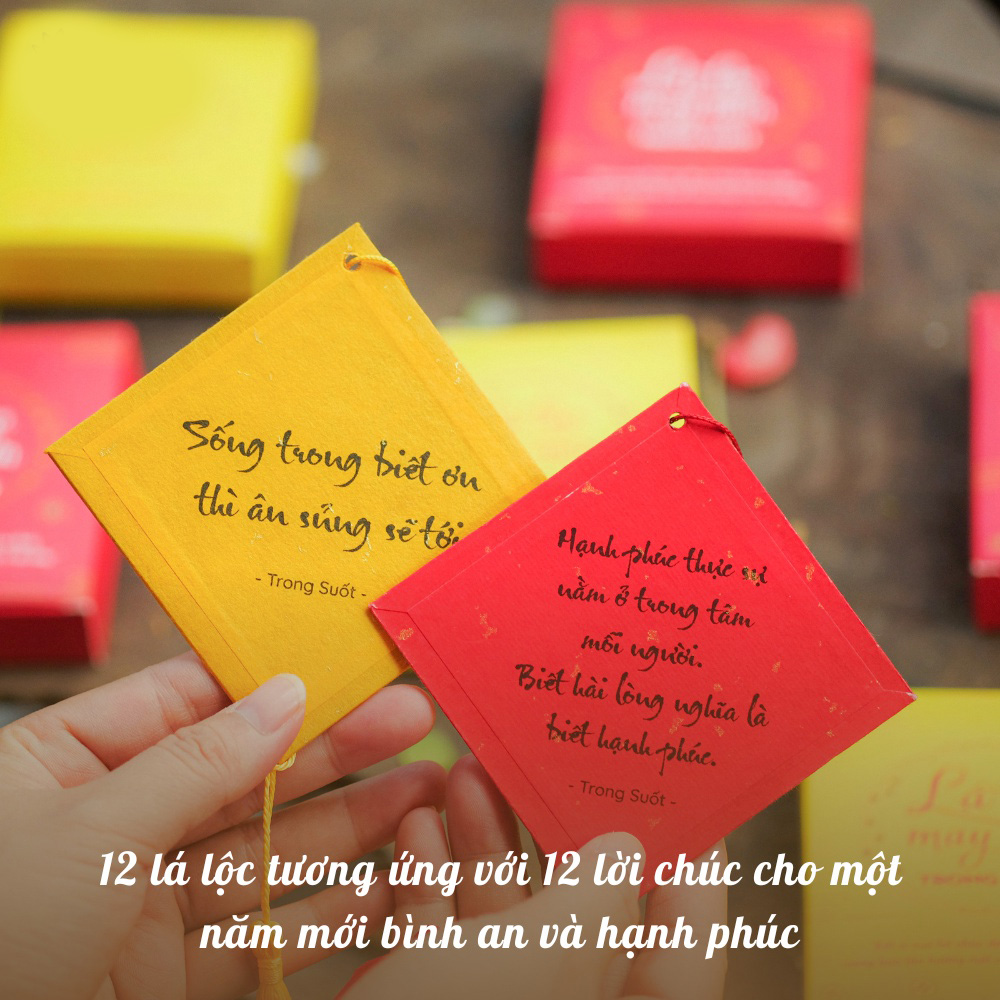 Sống trong biết ơn
thì ân sủng sẽ tới
- Trong Suốt -
Hạnh phúc thực sự
nằm ở trong tâm
mỗi người.
Biết hài lòng nghĩa là
biết hạnh phúc.
- Trong Suốt -
Lá
may
12 lá lộc tương ứng với 12 lời chúc cho một
năm mới bình an và hạnh phúc